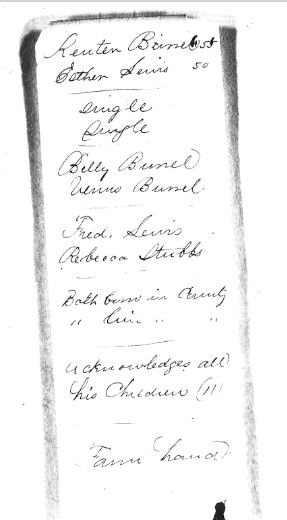 Reuten Bunel 55
Esther Sevis 50
Single
Single
Billy Bunel
Venus Bunel
Fred. Sevis
Rebecca Stubbs
Both born in County
" live " "
acknowledges all
his Children (11)
Farm hand